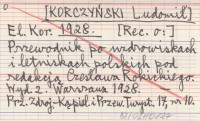 [KORCZYŃSKI Ludomił]
El. Kor. 1928. [Rec. o:]
Przewodnik po uzdrowiskach
i letniskach polskich pod
redakcją Czesława Rokickiego.
Wyd. 2. Warszawa 1928.
Prz. Zdroj.-Kąpiel. i Przew. Turyst. 17, nr 10.